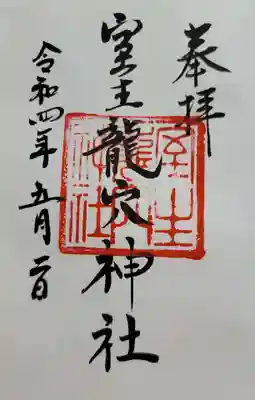 奉拝
室生龍穴神社
室生龍穴神社
令和四年五月二日